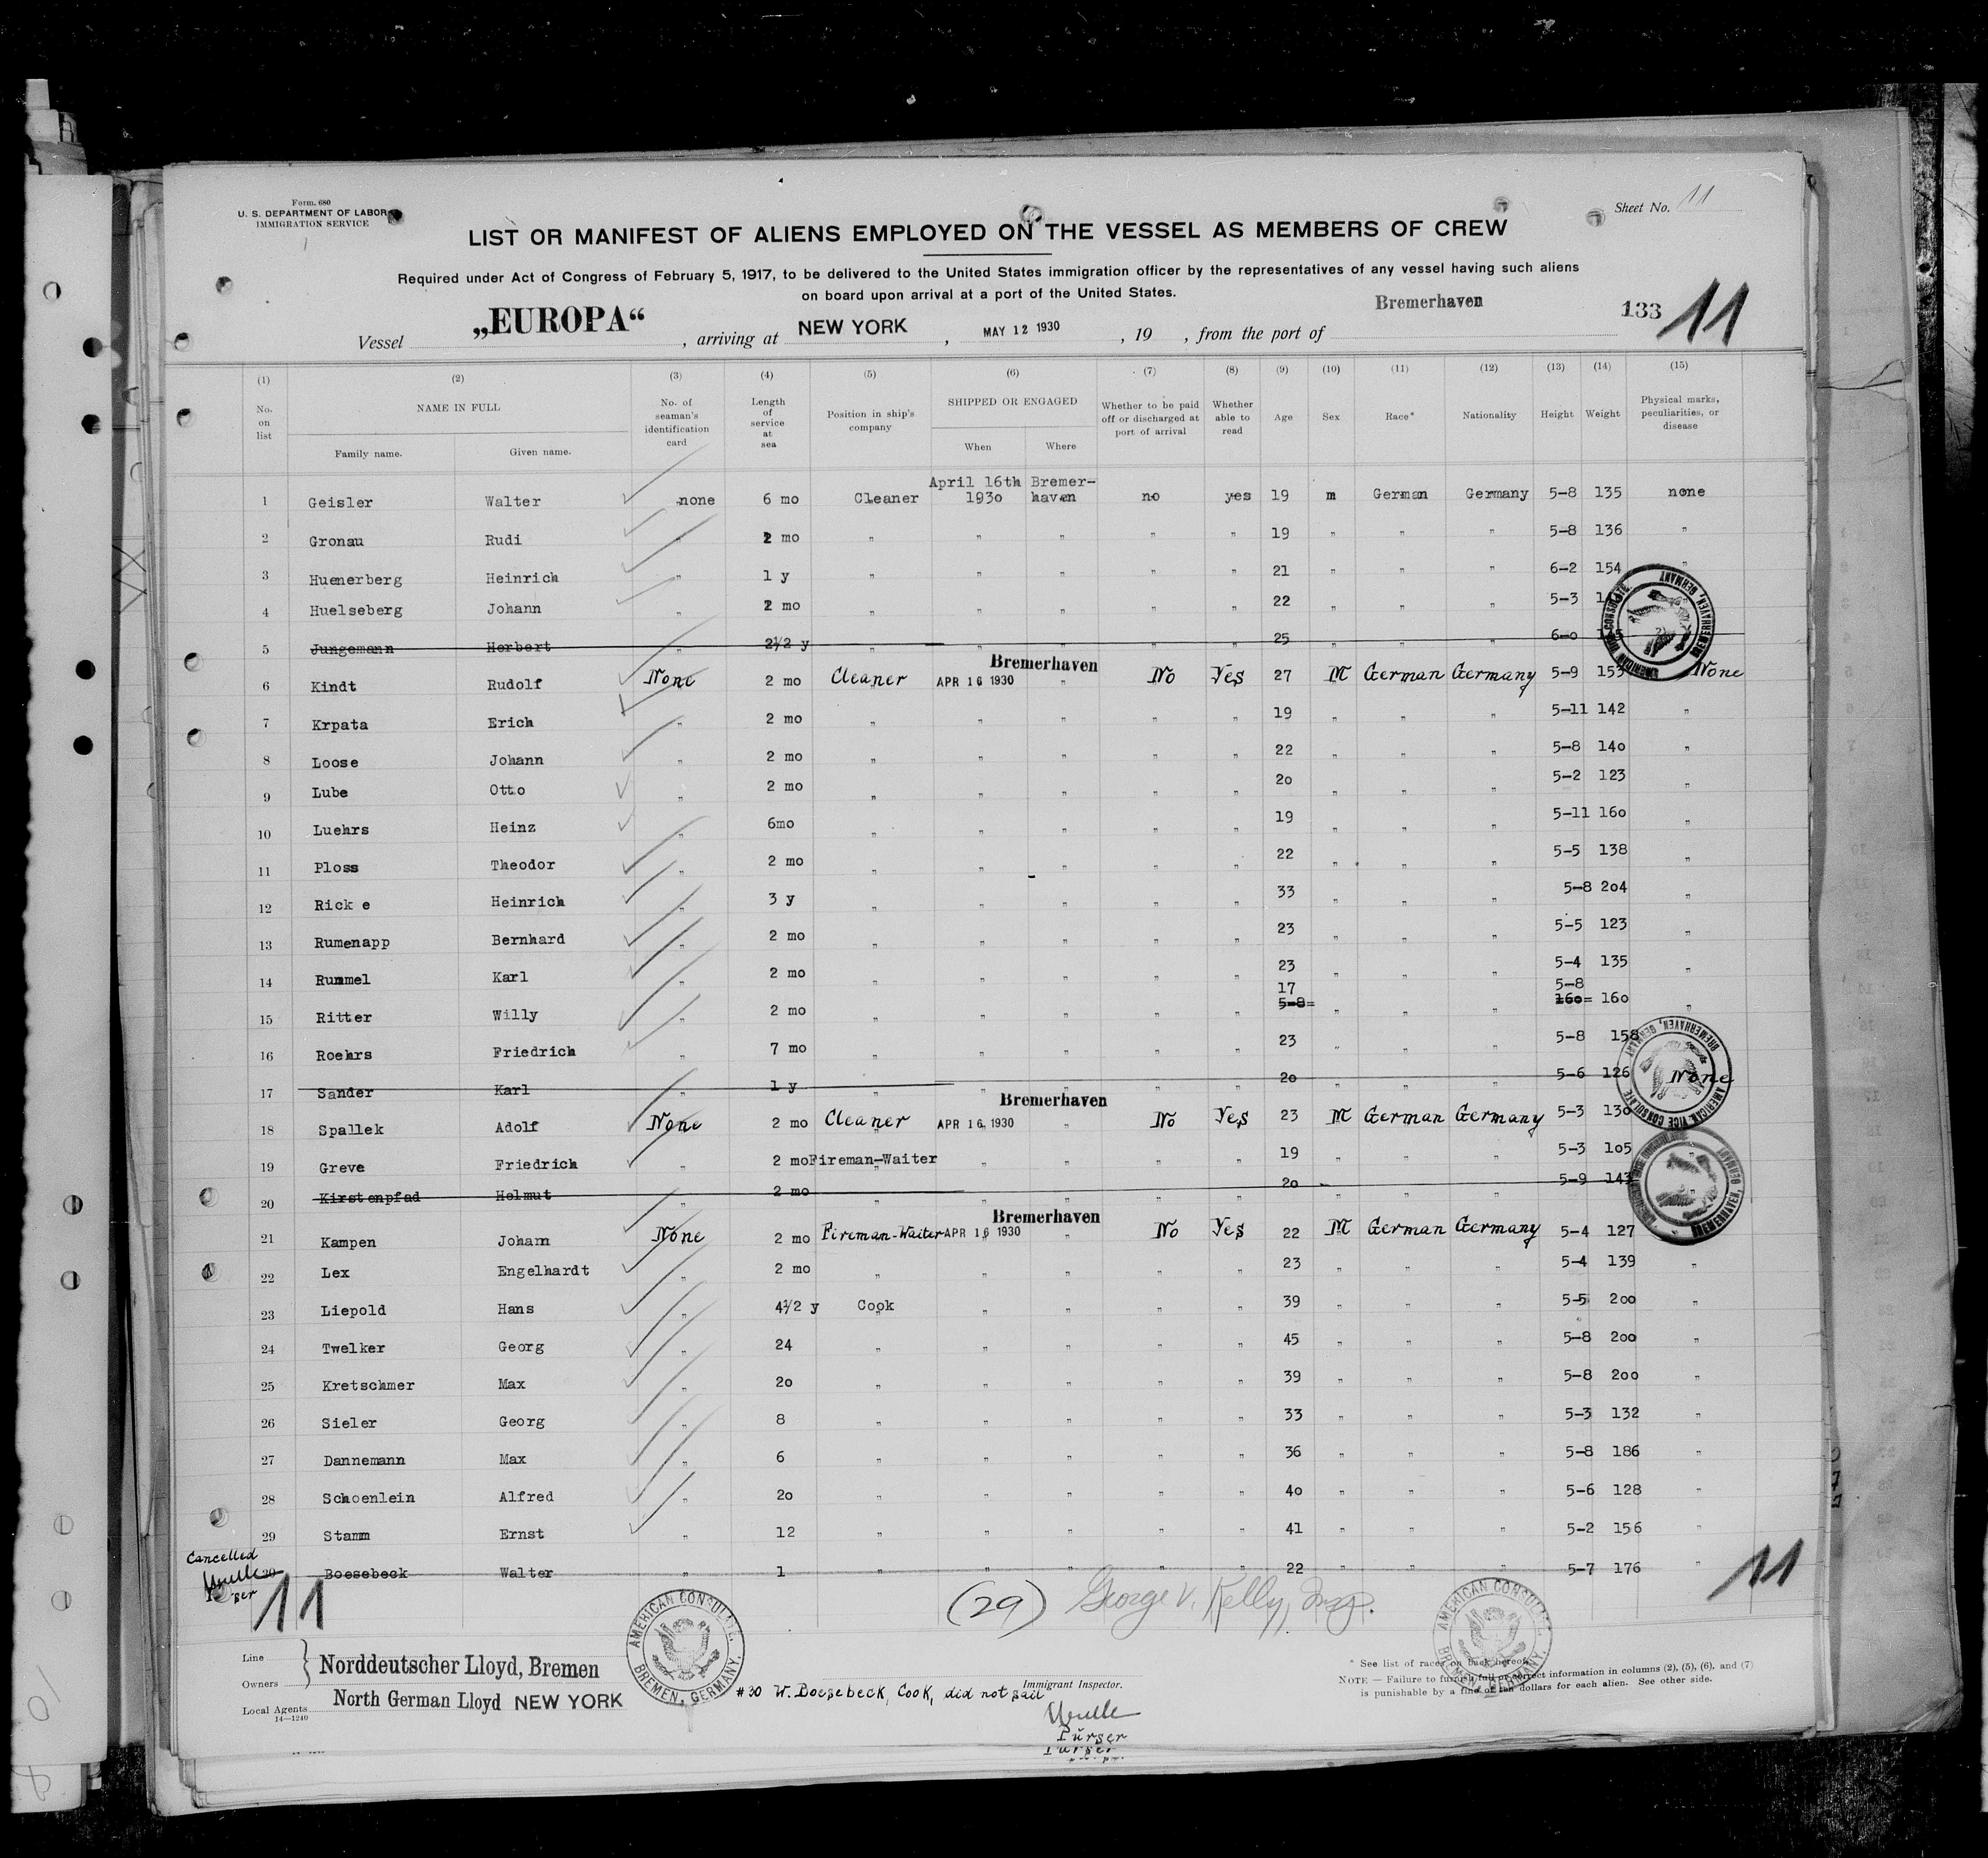 Form. 680
U. S. DEPARTMENT OF LABOR
IMMIGRATION SERVICE
Sheet No. 11
LIST OR MANIFEST OF ALIENS EMPLOYED ON THE VESSEL AS MEMBERS OF CREW
Required under Act of Congress of February 5, 1917, to be delivered to the United States immigration officer by the representatives of any vessel having such aliens
on board upon arrival at a port of the United States.
Vessel „EUROPA“ , arriving at NEW YORK , MAY 12 1930 , 19 , from the port of Bremerhaven 133 11
(1) (2) (3) (4) (5) (6) (7) (8) (9) (10) (11) (12) (13) (14) (15)
No. on list
NAME IN FULL
Family name. Given name.
No. of seaman's identification card
Length of service at sea
Position in ship's company
SHIPPED OR ENGAGED
When Where
Whether to be paid off or discharged at port of arrival
Whether able to read
Age
Sex
Race*
Nationality
Height
Weight
Physical marks, peculiarities, or disease
1 Geisler Walter none 6 mo Cleaner April 16th 1930 Bremer-haven no yes 19 m German Germany 5-8 135 none
2 Gronau Rudi " 2 mo " " " " " 19 " " " 5-8 136 "
3 Huenerberg Heinrich " 1 y " " " " " 21 " " " 6-2 154 "
4 Huelseberg Johann " 2 mo " " " " " 22 " " " 5-3
5 Jungemann Herbert " 2½ y " " " " " 25 " " " 6-0
6 Kindt Rudolf None 2 mo Cleaner APR 16 1930 Bremerhaven No Yes 27 M German Germany 5-9 153 None
7 Krpata Erich " 2 mo " " " " " 19 " " " 5-11 142 "
8 Loose Johann " 2 mo " " " " " 22 " " " 5-8 140 "
9 Lube Otto " 2 mo " " " " " 20 " " " 5-2 123 "
10 Luehrs Heinz " 6mo " " " " " 19 " " " 5-11 160 "
11 Ploss Theodor " 2 mo " " " " " 22 " " " 5-5 138 "
12 Rick e Heinrich " 3 y " " " " " 33 " " " 5-8 204 "
13 Rumenapp Bernhard " 2 mo " " " " " 23 " " " 5-5 123 "
14 Rummel Karl " 2 mo " " " " " 23 " " " 5-4 135 "
15 Ritter Willy " 2 mo " " " " " 17 5-8= " " " 5-8 160= 160 "
16 Roehrs Friedrich " 7 mo " " " " " 23 " " " 5-8 158
17 Sander Karl " 1 y " " " " " 20 " " " 5-6 126 None
18 Spallek Adolf None 2 mo Cleaner APR 16 1930 Bremerhaven No Yes 23 M German Germany 5-3 130
19 Greve Friedrich " 2 mo Fireman-Waiter " " " " 19 " " " 5-3 105
20 Kirstenpfad Helmut " 2 mo " " " " " 20 " " " 5-9 143
21 Kampen Joham None 2 mo Fireman-Waiter APR 16 1930 Bremerhaven No Yes 22 M German Germany 5-4 127
22 Lex Engelhardt " 2 mo " " " " " 23 " " " 5-4 139 "
23 Liepold Hans " 4½ y Cook " " " " 39 " " " 5-5 200 "
24 Twelker Georg " 24 " " " " " 45 " " " 5-8 200 "
25 Kretschmer Max " 20 " " " " " 39 " " " 5-8 200 "
26 Sieler Georg " 8 " " " " " 33 " " " 5-3 132 "
27 Dannemann Max " 6 " " " " " 36 " " " 5-8 186 "
28 Schoenlein Alfred " 20 " " " " " 40 " " " 5-6 128 "
29 Stamm Ernst " 12 " " " " " 41 " " " 5-2 156 "
Cancelled
30 Boesebeck Walter " 1 " " " " " 22 " " " 5-7 176 "
11 11
(29) George V. Kelly, Insp.
AMERICAN CONSULATE. BREMEN, GERMANY.
AMERICAN CONSULATE. BREMEN, GERMANY.
AMERICAN VICE CONSULATE BREMERHAVEN, GERMANY
Line
Owners
Norddeutscher Lloyd, Bremen
Local Agents North German Lloyd NEW YORK
14—1240
#30 W. Boesebeck, Cook, did not sail
Immigrant Inspector.
Purser
Purser
* See list of races on back hereof.
NOTE — Failure to furnish full or correct information in columns (2), (5), (6), and (7)
is punishable by a fine of ten dollars for each alien. See other side.